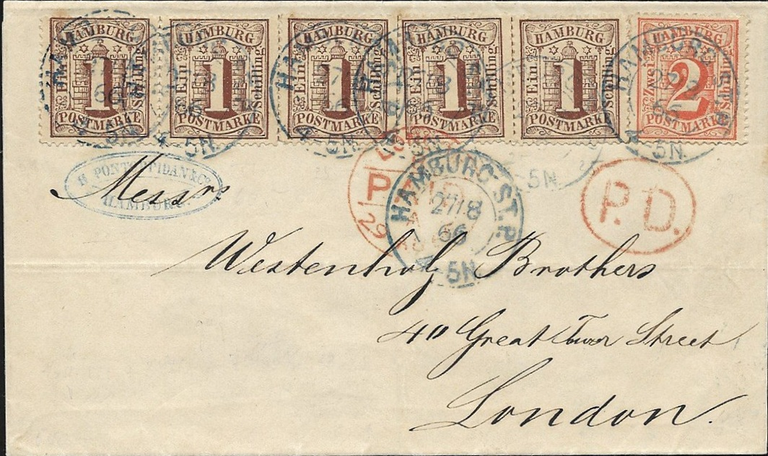 HAMBURG HAMBURG HAMBURG HAMBURG HAMBURG HAMBURG
Ein 1 Schilling Ein 1 Schilling Ein 1 Schilling Ein 1 Schilling Ein 1 Schilling Zwei 2 Schilling
POSTMARKE POSTMARKE POSTMARKE POSTMARKE POSTMARKE POSTMARKE
HAMBURG
4-5N
HAMBURG ST.P.
27/8
66
4-5N
P.D.
HAMBURG
Messrs
Westenholz Brothers
40 Great Tower Street
London.